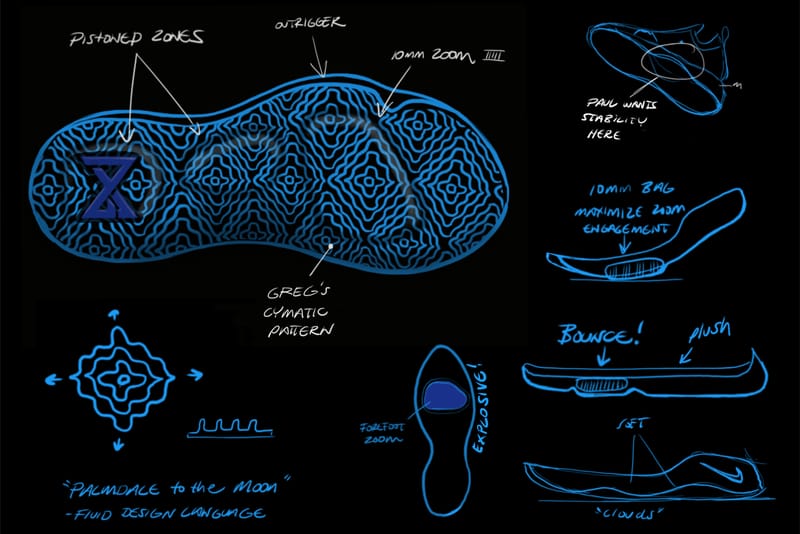 PISTONED ZONES
OUTRIGGER
10MM ZOOM
GREG'S
CYMATIC
PATTERN
PAUL WANTS
STABILITY
HERE
10MM BAG
MAXIMIZE ZOOM
ENGAGEMENT
BOUNCE!
plush
SOFT
"CLOUDS"
FOREFOOT
ZOOM
EXPLOSIVE!
"PALMDALE to the MOON"
- FLUID DESIGN LANGUAGE